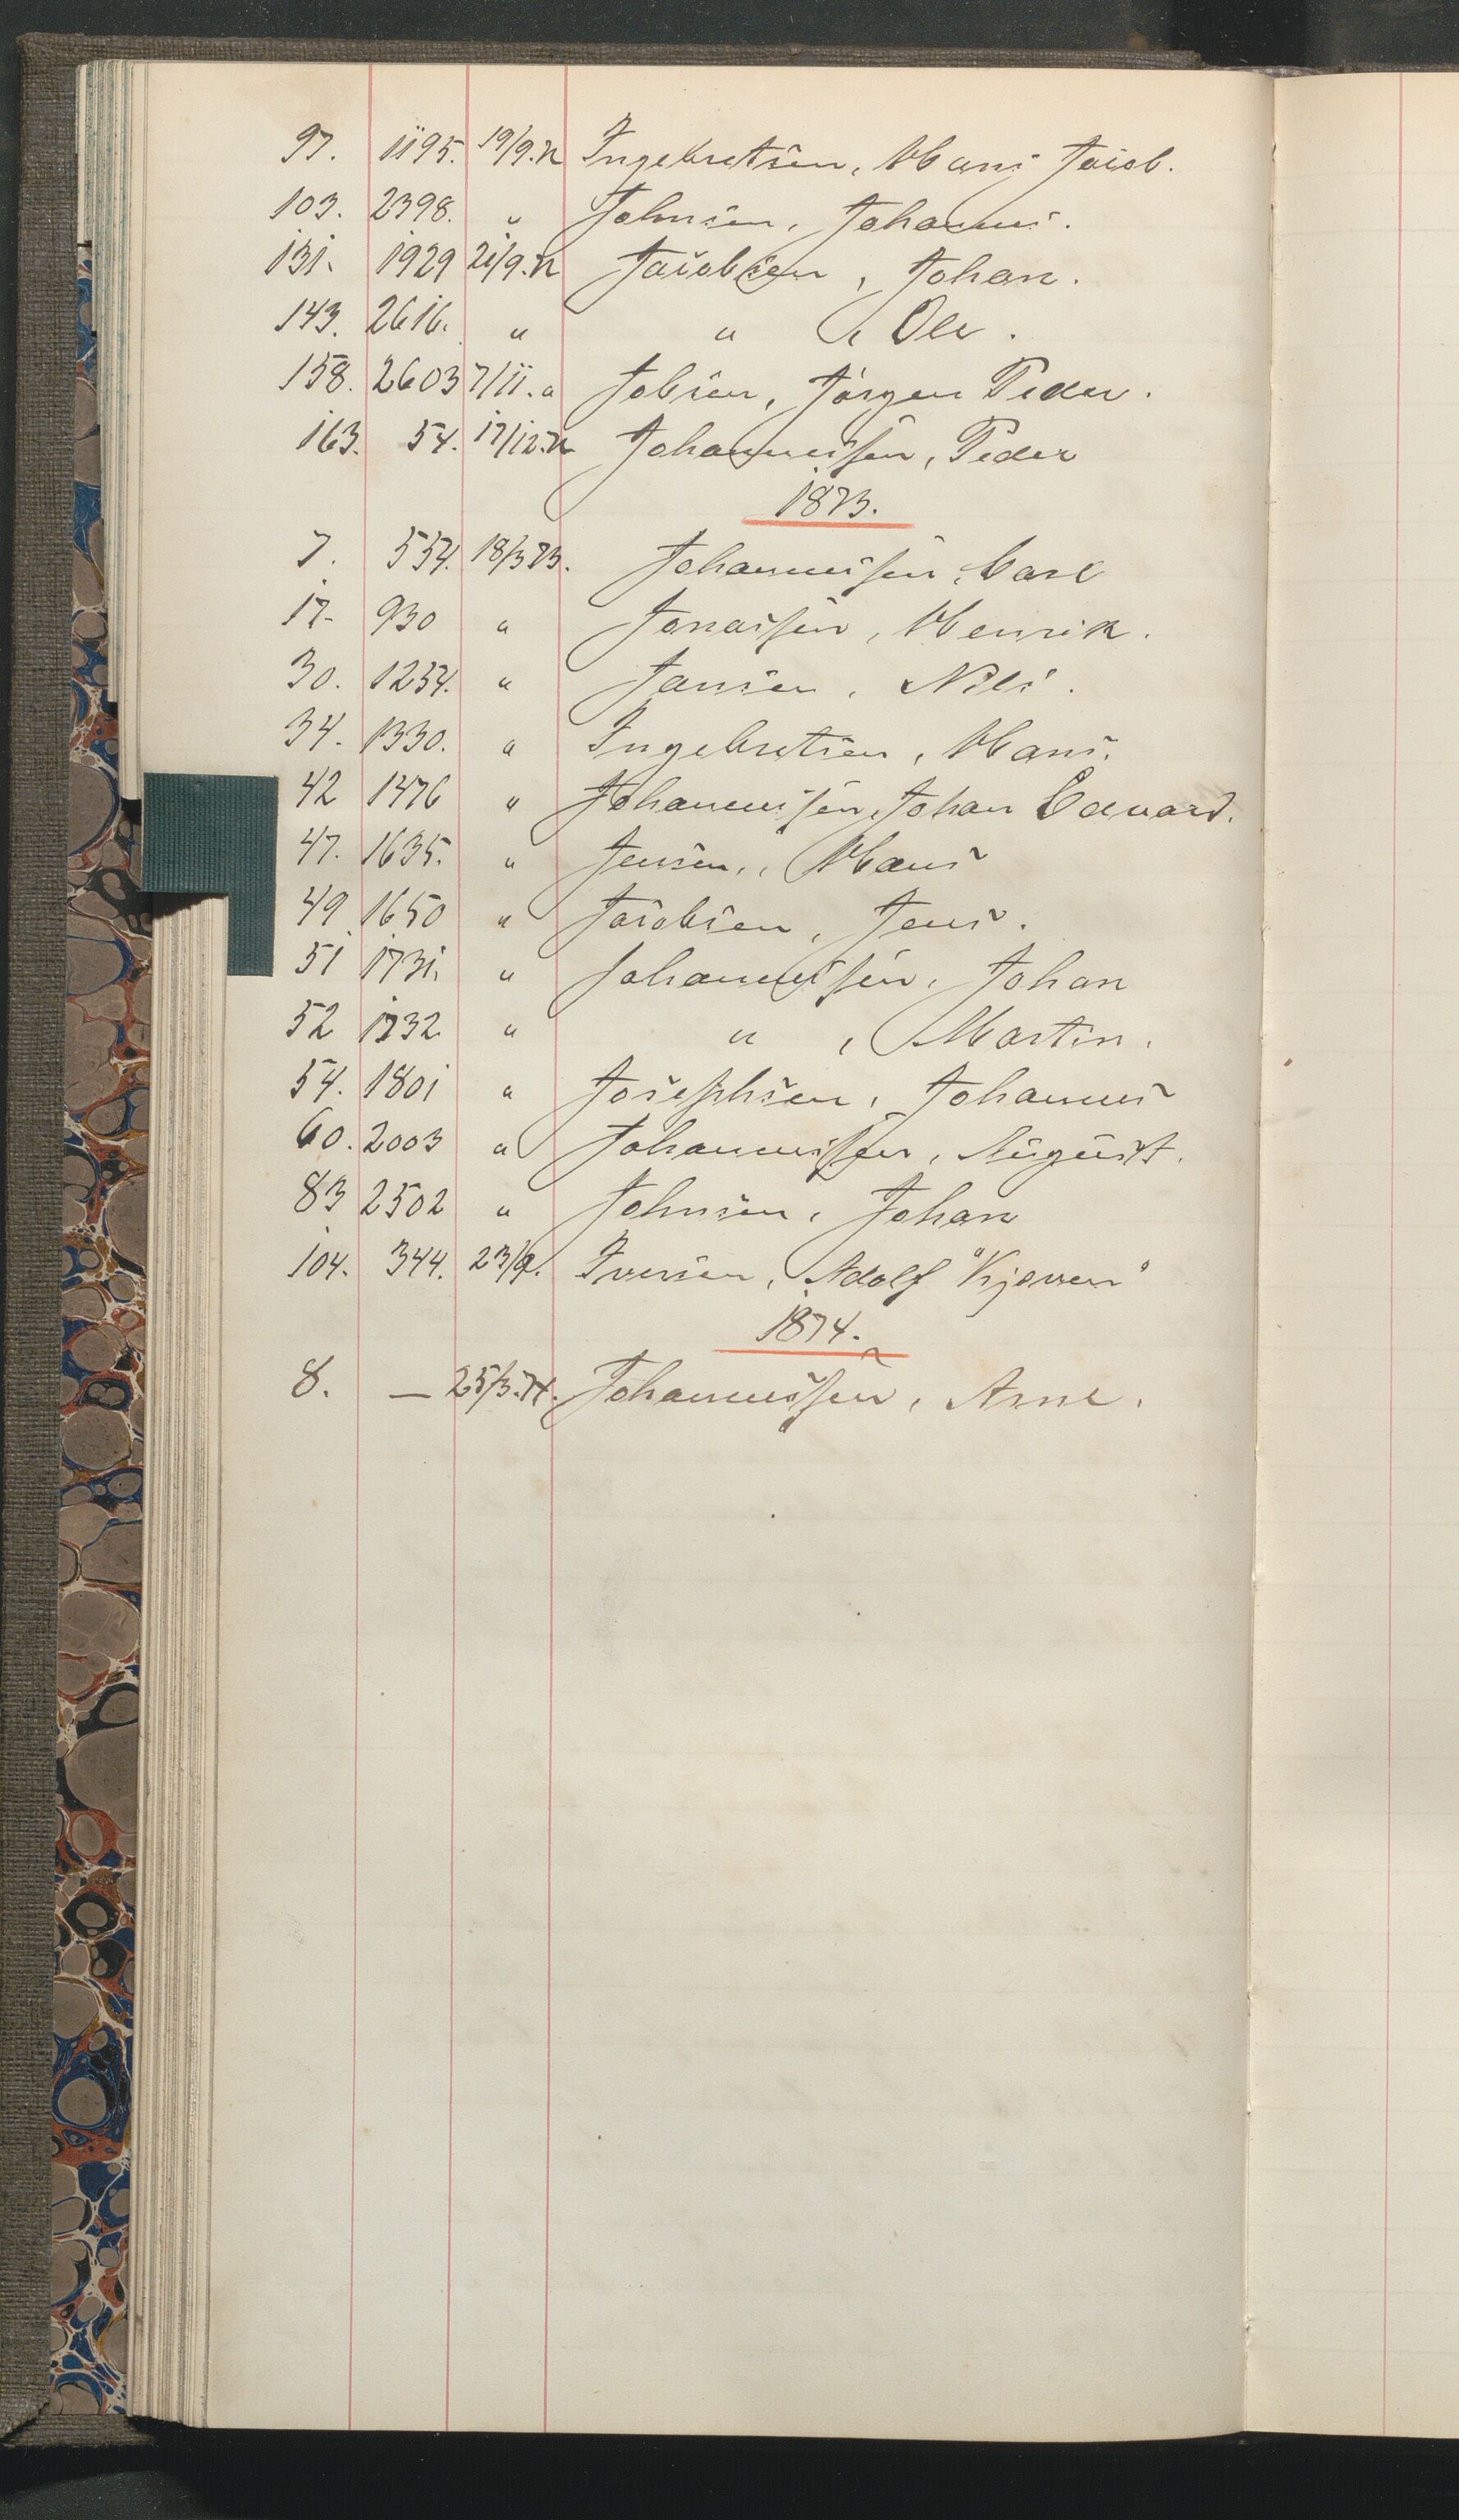 97. 1195. 19/9.72 Ingebretsen, Hans Jacob.
103. 2398. " Johnsen, Johannes.
131. 1929 21/9.72 Jacobsen, Johan.
143. 2616. " " , Ole.
158. 2603 7/11. " Jobsen, Jörgen Peder.
163. 54. 17/12.72 Johannessen, Peder
1873.
7. 554. 18/3 73. Johannessen, Carl
17. 930 " Jonassen, Henrik.
30. 1234. " Jansen, Nils.
34. 1330. " Ingebretsen, Hans.
42 1476 " Johannessen, Johan Edvard.
47. 1635. " Jensen, Hans
49 1650 " Jacobsen, Jens.
51 1731. " Johannessen, Johan
52 1732 " " , Martin.
54. 1801 " Josephsen, Johannes
60. 2003 " Johannessen, August.
83 2502 " Johnsen, Johan
104. 344. 23/9. Iversen, Adolf "Kjeven"
1874.
8. — 25/3.74. Johannessen, Arne.